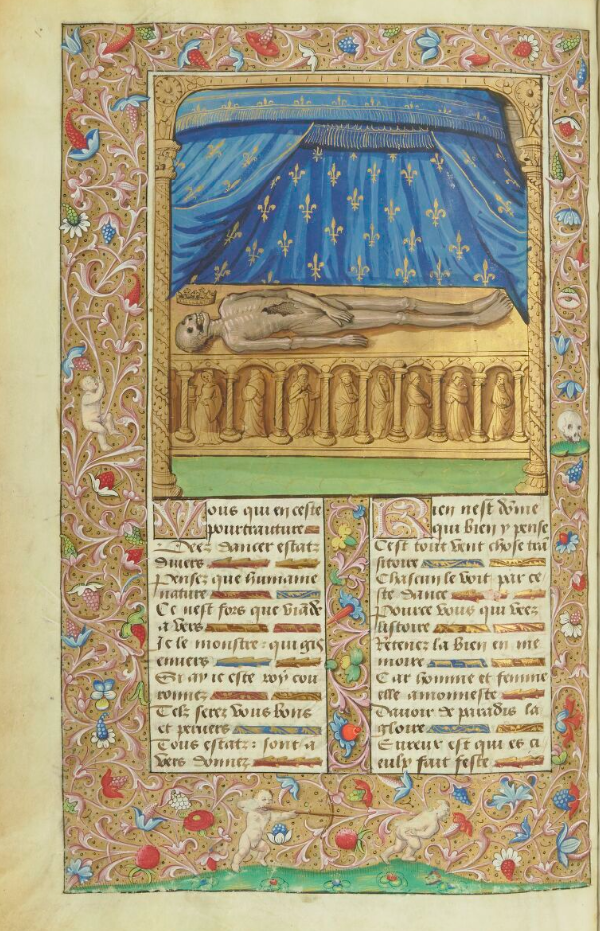 Vous qui en ceste
pourtraiture
Veez dancer estatz
diuers
Pensez que humaine
nature
Ce nest fors que viāde
a vers
Je le monstre: qui gis
enuers
Si ay ie este roy cou
ronnez
Telz serez vous bons
et peruers
Tous estatz: sont a
vers donnez
Rien nest dōme
qui bien y pense
Cest tout vent chose trā
sitoire
Chascun le voit par ce
ste dance
Pource vous qui veez
listoire
Retenez la bien en me
moire
Car homme et femme
elle amonneste
Dauoir de paradis la
gloire
Eureux est qui es ci
eulx fait feste